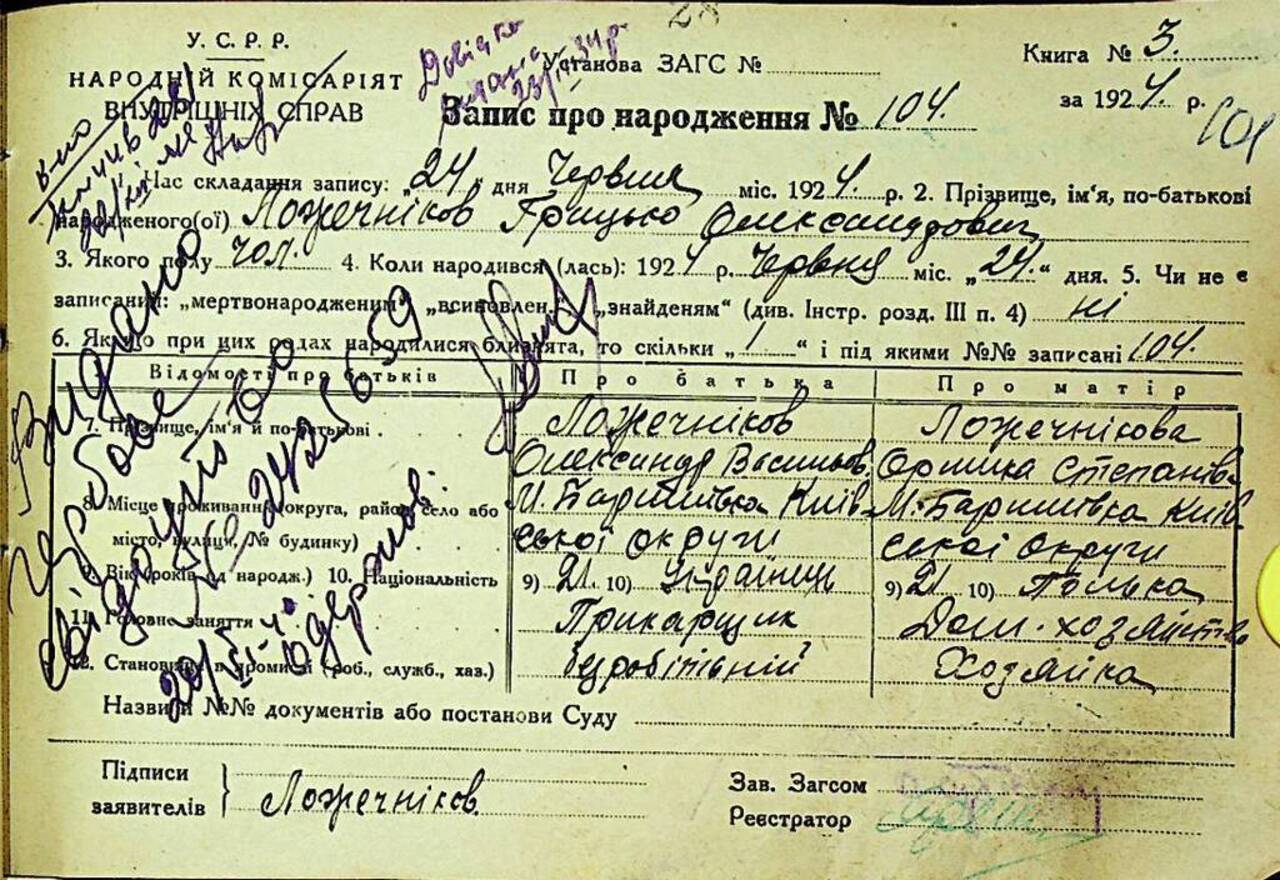 28
У. С. Р. Р.
НАРОДНІЙ КОМІСАРІЯТ
ВНУТРІШНІХ СПРАВ
Довідка
видана
23/ 34р.
Установа ЗАГС №
Книга № 3.
за 1924. р.
101
Запис про народження № 104.
Час складання запису: „24“ дня Червня міс. 1924. р. 2. Прізвище, ім‘я, по-батькові
народженого(ої) Ложечніков Грицько Олександрович
3. Якого полу чол. 4. Коли народився (лась): 1924 р. Червня міс. „24.“ дня. 5. Чи не є
записаний: „мертвонародженим“ „всиновлен. „знайденям“ (див. Інстр. розд. III п. 4) ні
6. Якщо при цих родах народилися близнята, то скільки „1“ і під якими №№ записані 104.
Відомості про батьків Про батька Про матір
7. Прізвище, ім‘я й по-батькові Ложечніков Ложечнікова
Олександр Васильов. Оришка Степанів.
8. Місце проживання округа, район, село або М. Баришівка Київ- М. Баришівка Київ
місто, вулиця, № будинку) ської округи ської округи
9. Вік (років від народж.) 10. Національність 9) 21. 10) Українець 9) 21 10) Полька
11. Головне заняття Прикарщик Дом. хозяйство
12. Становище в промислі (роб., служб., хаз.) безробітній Хозяйка
Назви й №№ документів або постанови Суду
Підписи
заявителів Ложечніков
Зав. Загсом
Реєстратор
Видано
свідоцтво
№ 2425659
одержив.